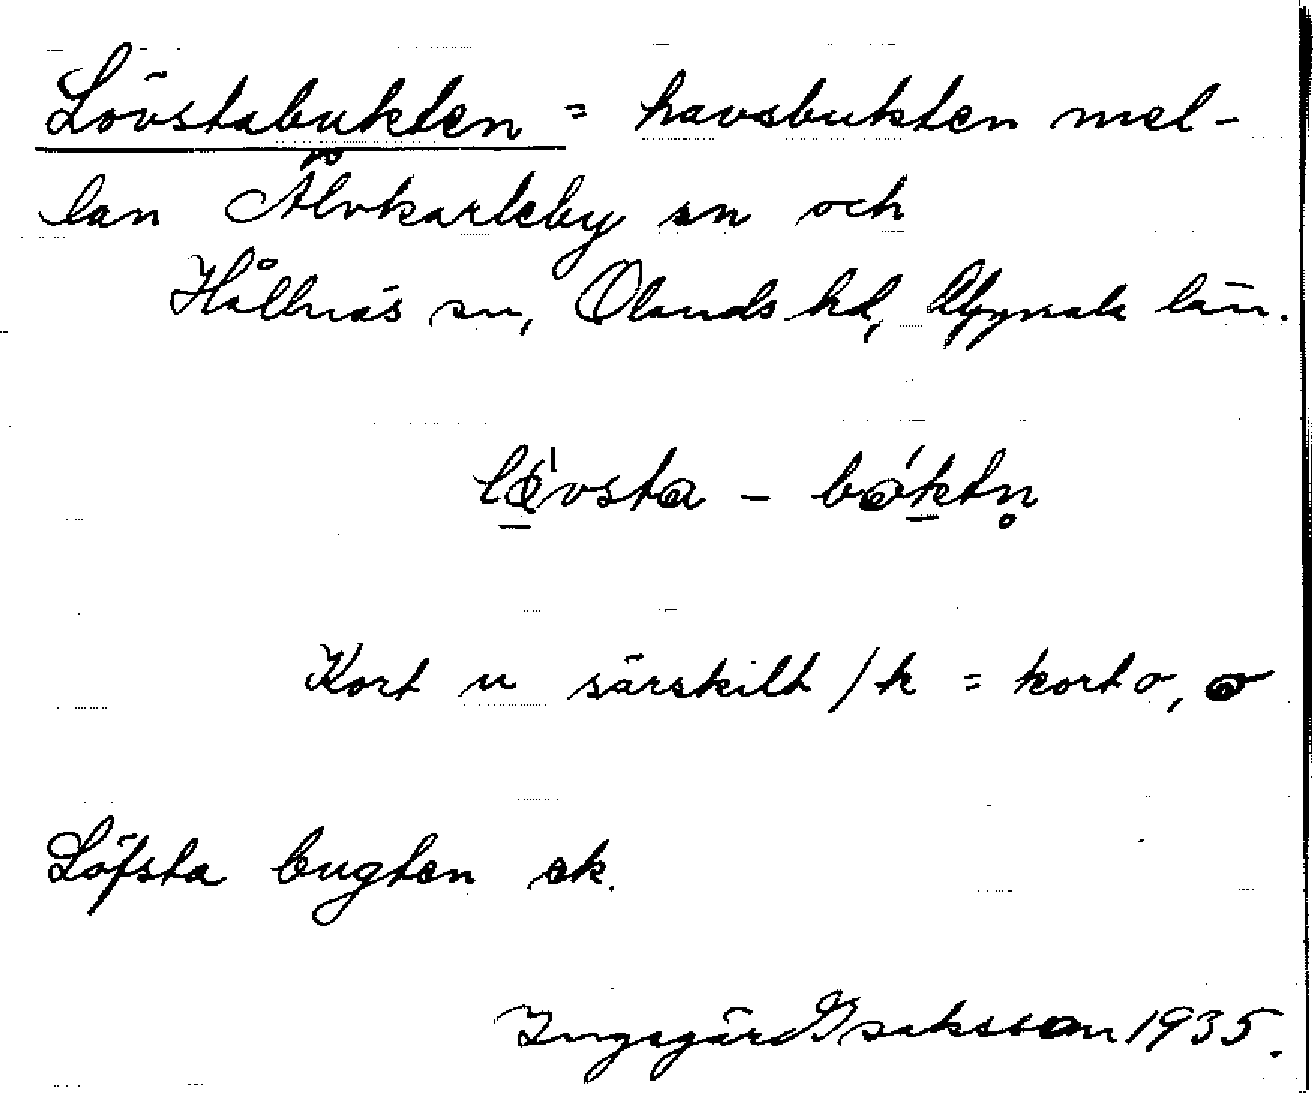 Lövstabukten = havsbukten mel-
lan Älvkarleby sn och
Hållnäs sn, Olands hd, Uppsala län.
Kort u särskilt /k = kort o,
Löfsta bugten ek.
Ingegärd Isaksson 1935.